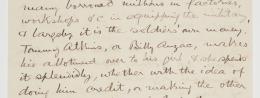 many borrowed millions in factories,
workshops &c in equipping the military,
& largely it is the soldiers' own money.
Tommy Atkins, or Billy Anzac, makes
his allotment over to his girl & she spends
it splendidly, whether with the idea of
doing him credit, or making the other